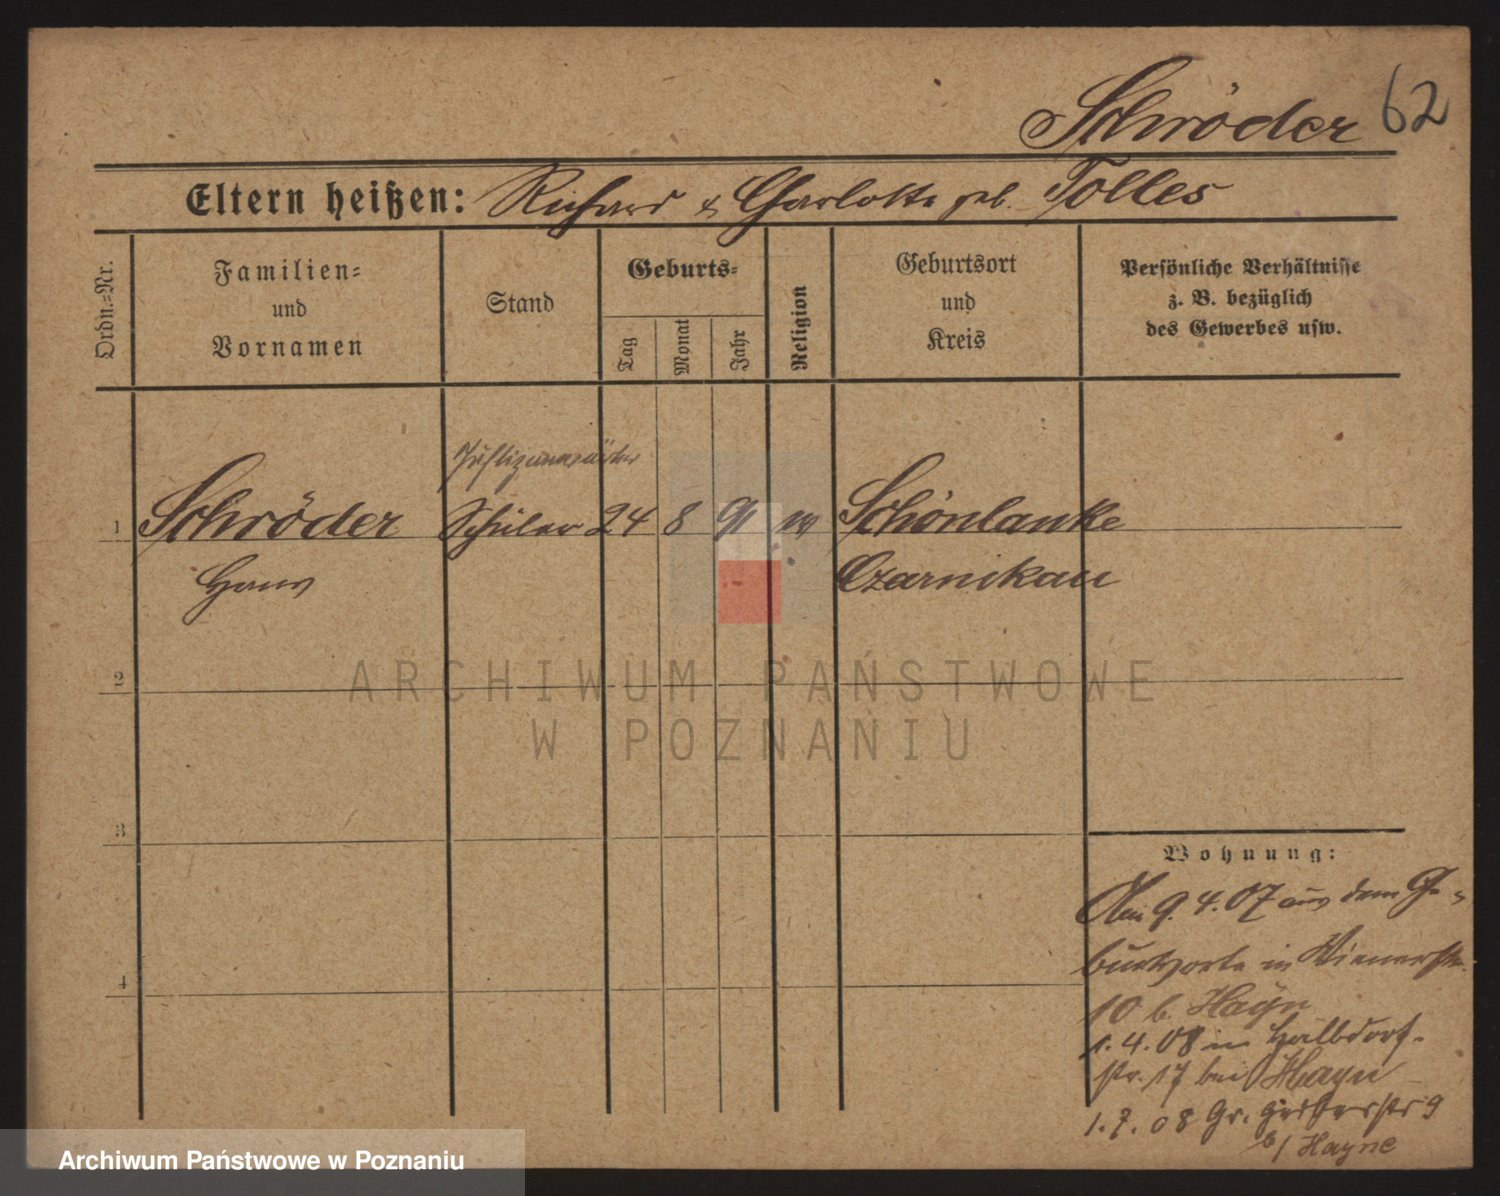 Schröder 62
Eltern heißen: Richard & Charlotte geb. Tolles
Ordn.=Nr.
Familien=
und
Vornamen
Stand
Geburts=
Tag
Monat
Jahr
Religion
Geburtsort
und
Kreis
Persönliche Verhältnisse
z. B. bezüglich
des Gewerbes usw.
Justizanwärter
1 Schröder Schüler 24 8 91 Schönlanke
Hans Czarnikau
2
3
4
Wohnung:
Am 9. 4. 07 aus dem Ge-
burtsorte in Wienerstr.
10 b. Hayn
1. 4. 08 in Halbdorf-
str. 17 bei Hayn
1. 7. 08 Gr. Gerberstr 9
b/ Hayne
ARCHIWUM PAŃSTWOWE
W POZNANIU
Archiwum Państwowe w Poznaniu